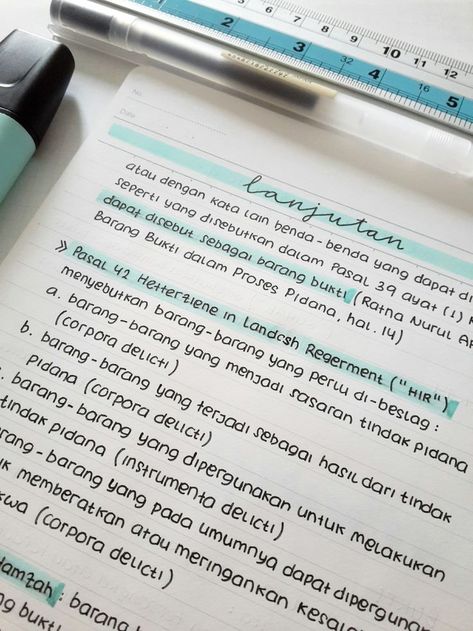 2 3 4 5
7 8 9 10 11 12
32
16
No.
Date
lanjutan
atau dengan kata lain benda-benda yang dapat di
seperti yang disebutkan dalam Pasal 39 ayat (1) K
dapat disebut sebagai barang bukti (Ratna Nurul Af
Barang Bukti dalam Proses Pidana, hal. 14)
» Pasal 42 Hetterziene in Landcsh Regerment ("HIR")
menyebutkan barang-barang yang perlu di-beslag :
a. barang-barang yang menjadi sasaran tindak pidana
(corpora delicti)
b. barang-barang yang terjadi sebagai hasil dari tindak
pidana (corpora delicti)
. barang-barang yang dipergunakan untuk melakukan
tindak pidana (instrumenta delicti)
arang-barang yang pada umumnya dapat dipergunan
uk memberatkan atau meringankan kesala
kwa (corpora delicti)
Hamzah : barang b
ng bukti